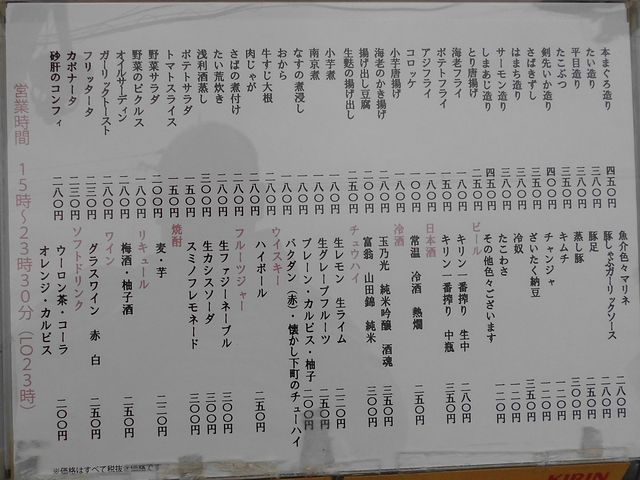 本まぐろ造り 四五〇円
たい造り 三八〇円
平目造り 三八〇円
たこぶつ 三五〇円
剣先いか造り 三〇〇円
さばきずし 三五〇円
はまち造り 三八〇円
サーモン造り 三八〇円
しまあじ造り 四五〇円
とり唐揚げ 二五〇円
海老フライ 一八〇円
ポテトフライ 一五〇円
アジフライ 一八〇円
コロッケ 一〇〇円
小芋唐揚げ 一八〇円
海老のかき揚げ 二〇〇円
揚げ出し豆腐 二〇〇円
生麩の揚げ出し 二五〇円
小芋煮 一八〇円
南京煮 一八〇円
なすの煮浸し 一八〇円
おから 一八〇円
牛すじ大根 二八〇円
肉じゃが 一八〇円
さばの煮付け 一八〇円
たい荒炊き 二八〇円
浅利酒蒸し 三〇〇円
ポテトサラダ 一五〇円
トマトスライス 一五〇円
野菜サラダ 二〇〇円
野菜のピクルス 一八〇円
オイルサーディン 二八〇円
ガーリックトースト 一八〇円
フリッタータ 二三〇円
カポナータ 二三〇円
砂肝のコンフィ 二八〇円
魚介色々マリネ 二八〇円
豚しゃぶガーリックソース 二八〇円
豚足 二五〇円
蒸し豚 三〇〇円
キムチ 一二〇円
チャンジャ 二二〇円
ざいたく納豆 三五〇円
冷奴 一二〇円
たこわさ 一二〇円
その他色々ございます
ビール
キリン一番搾り 生中 二八〇円
キリン一番搾り 中瓶 三五〇円
日本酒
常温 冷酒 熱燗 二五〇円
冷酒
玉乃光 純米吟醸 酒魂 三五〇円
富翁 山田錦 純米 三〇〇円
チュウハイ
生レモン 生ライム 二二〇円
生グレープフルーツ 二五〇円
プレーン・カルピス・柚子 二〇〇円
バクダン(赤)・懐かし下町のチューハイ
ウイスキー
ハイボール 二五〇円
フルーツジャー
生ファジーネーブル 三〇〇円
生カシスソーダ 三〇〇円
スミノフレモネード 三〇〇円
焼酎
麦・芋 二二〇円
リキュール
梅酒・柚子酒 二五〇円
ワイン
グラスワイン 赤 白 二五〇円
ソフトドリンク
ウーロン茶・コーラ
オレンジ・カルピス 二〇〇円
営業時間 15時～23時30分(LO23時)
※価格はすべて税抜き価格です
KIRIN